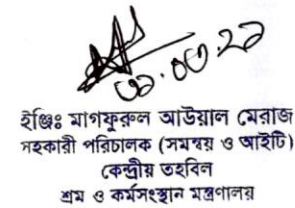 ইঞ্জিঃ মাগফুরুল আউয়াল মেরাজ
সহকারী পরিচালক (সমন্বয় ও আইটি)
কেন্দ্রীয় তহবিল
শ্রম ও কর্মসংস্থান মন্ত্রণালয়